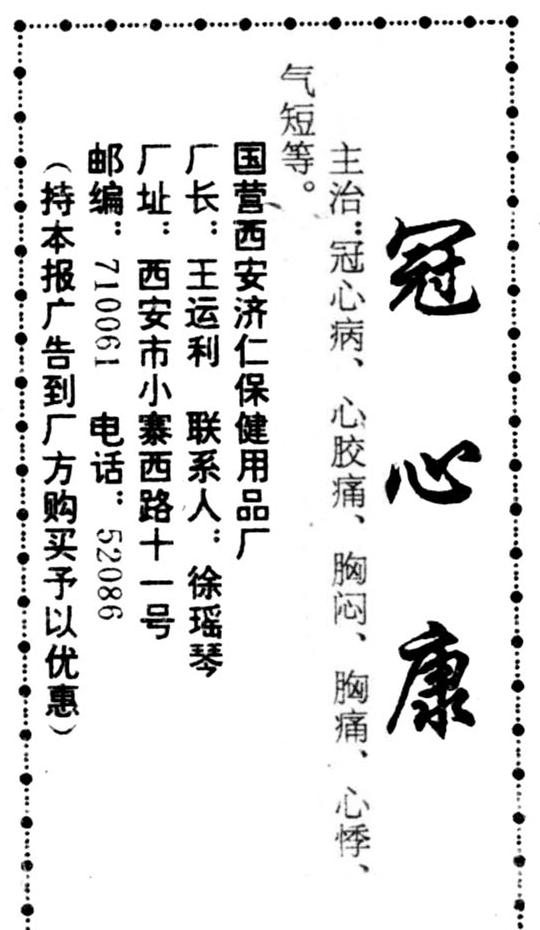 冠心康
主治：冠心病、心胶痛、胸闷、胸痛、心悸、
气短等。
国营西安济仁保健用品厂
厂长：王运利 联系人：徐瑶琴
厂址：西安市小寨西路十一号
邮编：710061 电话：52086
（持本报广告到厂方购买予以优惠）